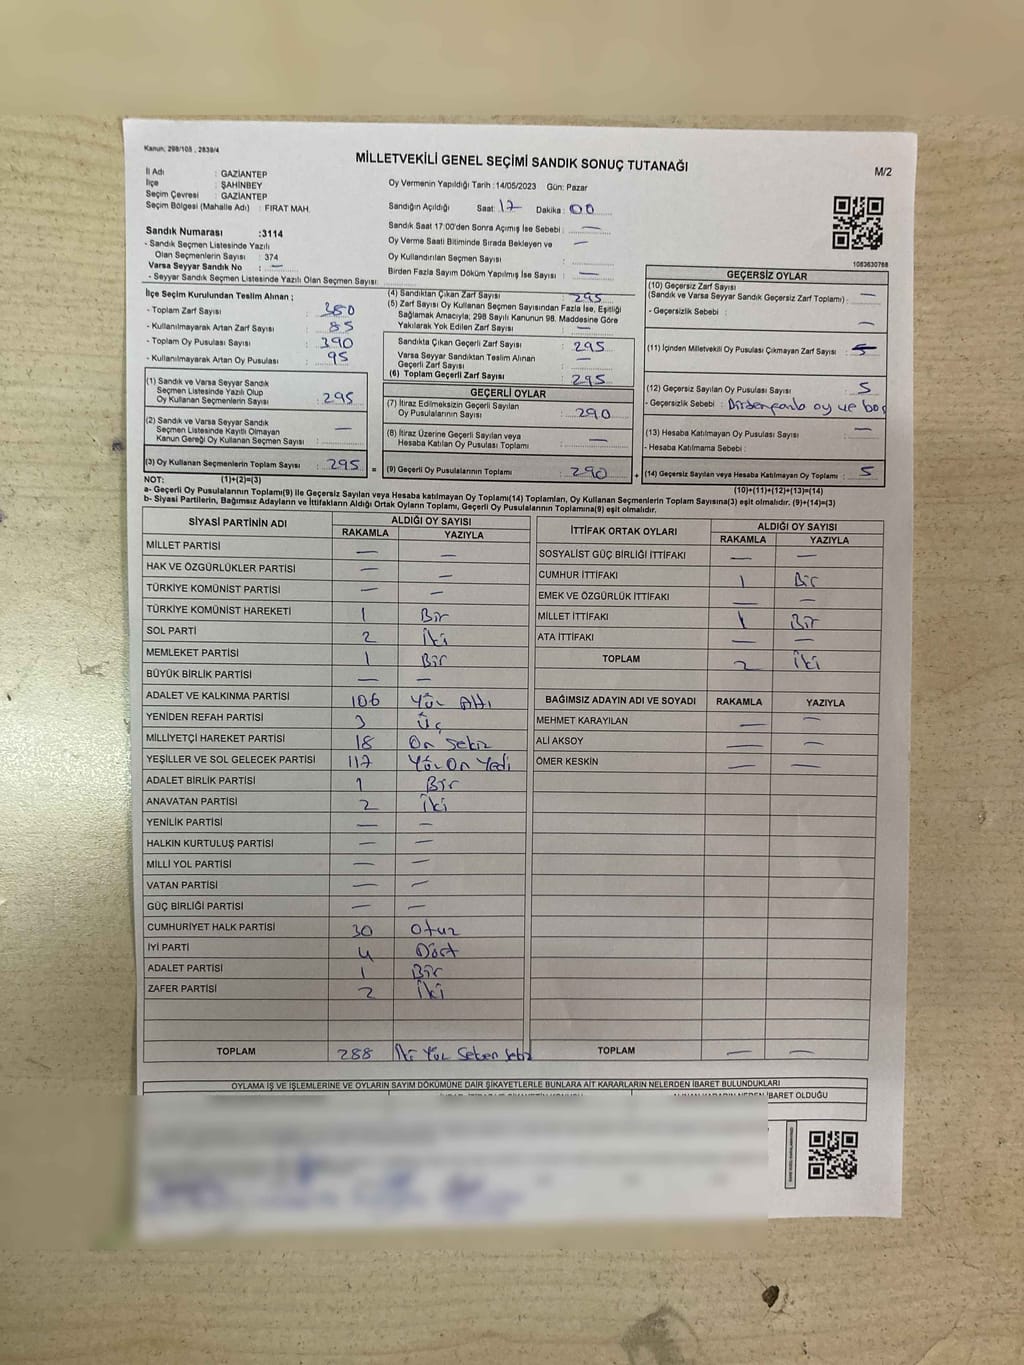 Kanun: 298/105 , 2839/4
MİLLETVEKİLİ GENEL SEÇİMİ SANDIK SONUÇ TUTANAĞI
M/2
İl Adı : GAZİANTEP
İlçe : ŞAHİNBEY
Seçim Çevresi : GAZİANTEP
Seçim Bölgesi (Mahalle Adı) : FIRAT MAH.
Oy Vermenin Yapıldığı Tarih :14/05/2023 Gün: Pazar
Sandığın Açıldığı Saat: 17 Dakika : 00
Sandık Saat 17:00'den Sonra Açımış İse Sebebi : —
Oy Verme Saati Bitiminde Sırada Bekleyen ve —
Oy Kullandırılan Seçmen Sayısı :
Birden Fazla Sayım Döküm Yapılmış İse Sayısı : —
Sandık Numarası :3114
- Sandık Seçmen Listesinde Yazılı
Olan Seçmenlerin Sayısı : 374
Varsa Seyyar Sandık No : —
- Seyyar Sandık Seçmen Listesinde Yazılı Olan Seçmen Sayısı:
1083630768
İlçe Seçim Kurulundan Teslim Alınan ;
- Toplam Zarf Sayısı : 380
- Kullanılmayarak Artan Zarf Sayısı : 85
- Toplam Oy Pusulası Sayısı : 390
- Kullanılmayarak Artan Oy Pusulası : 95
(1) Sandık ve Varsa Seyyar Sandık
Seçmen Listesinde Yazılı Olup
Oy Kullanan Seçmenlerin Sayısı : 295
(2) Sandık ve Varsa Seyyar Sandık
Seçmen Listesinde Kayıtlı Olmayan —
Kanun Gereği Oy Kullanan Seçmen Sayısı :
(3) Oy Kullanan Seçmenlerin Toplam Sayısı : 295
(1)+(2)=(3)
(4) Sandıktan Çıkan Zarf Sayısı : 295
(5) Zarf Sayısı Oy Kullanan Seçmen Sayısından Fazla İse, Eşitliği
Sağlamak Amacıyla; 298 Sayılı Kanunun 98. Maddesine Göre
Yakılarak Yok Edilen Zarf Sayısı : —
Sandıkta Çıkan Geçerli Zarf Sayısı : 295
Varsa Seyyar Sandıktan Teslim Alınan —
Geçerli Zarf Sayısı :
(6) Toplam Geçerli Zarf Sayısı : 295
GEÇERLİ OYLAR
(7) İtiraz Edilmeksizin Geçerli Sayılan
Oy Pusulalarının Sayısı : 290
(8) İtiraz Üzerine Geçerli Sayılan veya
Hesaba Katılan Oy Pusulası Toplamı : —
= (9) Geçerli Oy Pusulalarının Toplamı : 290
GEÇERSİZ OYLAR
(10) Geçersiz Zarf Sayısı
(Sandık ve Varsa Seyyar Sandık Geçersiz Zarf Toplamı) : —
- Geçersizlik Sebebi : —
(11) İçinden Milletvekili Oy Pusulası Çıkmayan Zarf Sayısı :
(12) Geçersiz Sayılan Oy Pusulası Sayısı : 5
- Geçersizlik Sebebi : oy ve boş
(13) Hesaba Katılmayan Oy Pusulası Sayısı : —
- Hesaba Katılmama Sebebi :
+ (14) Geçersiz Sayılan veya Hesaba Katılmayan Oy Toplamı : 5
(10)+(11)+(12)+(13)=(14)
NOT:
a- Geçerli Oy Pusulalarının Toplamı(9) ile Geçersiz Sayılan veya Hesaba katılmayan Oy Toplamı(14) Toplamları, Oy Kullanan Seçmenlerin Toplam Sayısına(3) eşit olmalıdır. (9)+(14)=(3)
b- Siyasi Partilerin, Bağımsız Adayların ve İttifakların Aldığı Ortak Oyların Toplamı, Geçerli Oy Pusulalarının Toplamına(9) eşit olmalıdır.
SİYASİ PARTİNİN ADI ALDIĞI OY SAYISI
RAKAMLA YAZIYLA
MİLLET PARTİSİ — —
HAK VE ÖZGÜRLÜKLER PARTİSİ — —
TÜRKİYE KOMÜNİST PARTİSİ — —
TÜRKİYE KOMÜNİST HAREKETİ 1 Bir
SOL PARTİ 2 İki
MEMLEKET PARTİSİ 1 Bir
BÜYÜK BİRLİK PARTİSİ — —
ADALET VE KALKINMA PARTİSİ 106 Yüz Altı
YENİDEN REFAH PARTİSİ 3 Üç
MİLLİYETÇİ HAREKET PARTİSİ 18 On Sekiz
YEŞİLLER VE SOL GELECEK PARTİSİ 117 Yüz On Yedi
ADALET BİRLİK PARTİSİ 1 Bir
ANAVATAN PARTİSİ 2 İki
YENİLİK PARTİSİ — —
HALKIN KURTULUŞ PARTİSİ — —
MİLLİ YOL PARTİSİ — —
VATAN PARTİSİ — —
GÜÇ BİRLİĞİ PARTİSİ — —
CUMHURİYET HALK PARTİSİ 30 Otuz
İYİ PARTİ 4 Dört
ADALET PARTİSİ 1 Bir
ZAFER PARTİSİ 2 İki
TOPLAM 288 İki Yüz Seksen Sekiz
İTTİFAK ORTAK OYLARI ALDIĞI OY SAYISI
RAKAMLA YAZIYLA
SOSYALİST GÜÇ BİRLİĞİ İTTİFAKI — —
CUMHUR İTTİFAKI 1 Bir
EMEK VE ÖZGÜRLÜK İTTİFAKI — —
MİLLET İTTİFAKI 1 Bir
ATA İTTİFAKI — —
TOPLAM 2 İki
BAĞIMSIZ ADAYIN ADI VE SOYADI RAKAMLA YAZIYLA
MEHMET KARAYILAN — —
ALİ AKSOY — —
ÖMER KESKİN — —
TOPLAM — —
OYLAMA İŞ VE İŞLEMLERİNE VE OYLARIN SAYIM DÖKÜMÜNE DAİR ŞİKAYETLERLE BUNLARA AİT KARARLARIN NELERDEN İBARET BULUNDUKLARI
İBARET OLDUĞU